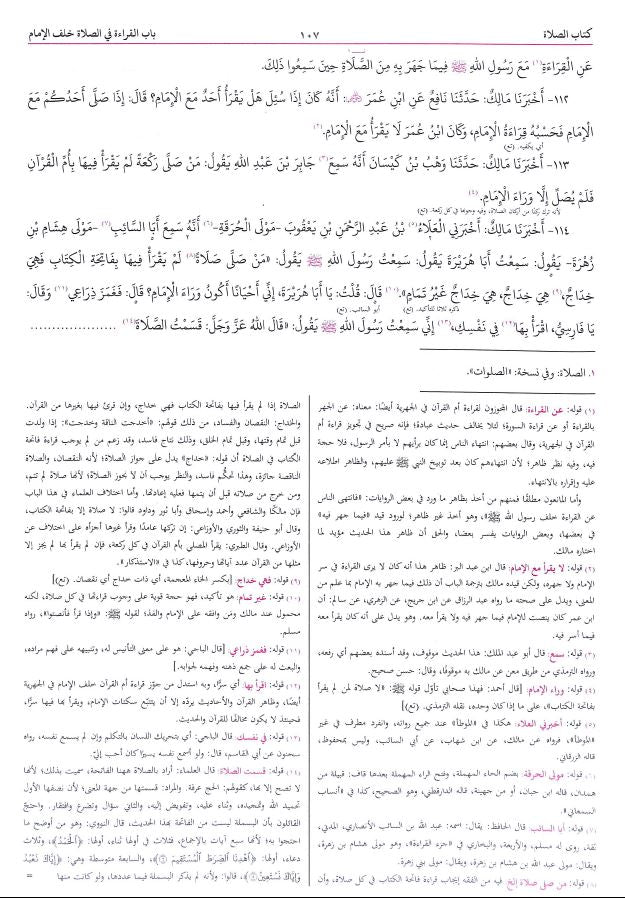 كتاب الصلاة
١٠٧
باب القراءة في الصلاة خلف الإمام
عَنِ الْقِرَاءَةِ(١) مَعَ رَسُولِ اللهِ ﷺ فِيمَا جَهَرَ بِهِ مِنَ الصَّلَاةِ حِينَ سَمِعُوا ذَلِكَ.
١١٢- أَخْبَرَنَا مَالِكٌ: حَدَّثَنَا نَافِعٌ عَنِ ابْنِ عُمَرَ: أَنَّهُ كَانَ إِذَا سُئِلَ هَلْ يَقْرَأُ أَحَدٌ مَعَ الْإِمَامِ؟ قَالَ: إِذَا صَلَّى أَحَدُكُمْ مَعَ
الْإِمَامِ فَحَسْبُهُ قِرَاءَةُ الْإِمَامِ، وَكَانَ ابْنُ عُمَرَ لَا يَقْرَأُ مَعَ الْإِمَامِ.(٢)
أي يكفيه. (تع)
١١٣- أَخْبَرَنَا مَالِكٌ: حَدَّثَنَا وَهْبُ بْنُ كَيْسَانَ أَنَّهُ سَمِعَ(٣) جَابِرَ بْنَ عَبْدِ اللهِ يَقُولُ: مَنْ صَلَّى رَكْعَةً لَمْ يَقْرَأْ فِيهَا بِأُمِّ الْقُرْآنِ
فَلَمْ يُصَلِّ إِلَّا وَرَاءَ الْإِمَامِ.(٤)
لأنه ترك ركنا من أركان الصلاة، وفيه وجوبها في كل ركعة. (تع)
١١٤- أَخْبَرَنَا مَالِكٌ: أَخْبَرَنِي الْعَلَاءُ(٥) بْنُ عَبْدِ الرَّحْمَنِ بْنِ يَعْقُوبَ -مَوْلَى الْحُرَقَةِ-(٦) أَنَّهُ سَمِعَ أَبَا السَّائِبِ(٧) -مَوْلَى هِشَامِ بْنِ
زُهْرَةَ- يَقُولُ: سَمِعْتُ أَبَا هُرَيْرَةَ يَقُولُ: سَمِعْتُ رَسُولَ اللهِ ﷺ يَقُولُ: «مَنْ صَلَّى صَلَاةً(٨) لَمْ يَقْرَأْ فِيهَا بِفَاتِحَةِ الْكِتَابِ فَهِيَ
خِدَاجٌ،(٩) هِيَ خِدَاجٌ، هِيَ خِدَاجٌ غَيْرُ تَمَامٍ».(١٠) قَالَ: قُلْتُ: يَا أَبَا هُرَيْرَةَ، إِنِّي أَحْيَانًا أَكُونُ وَرَاءَ الْإِمَامِ؟ قَالَ: فَغَمَزَ ذِرَاعِي(١١) وَقَالَ:
ذكره ثلاثا للتأكيد. (تع) أبو السائب. (تع)
يَا فَارِسِيُّ، اقْرَأْ بِهَا(١٢) فِي نَفْسِكَ،(١٣) إِنِّي سَمِعْتُ رَسُولَ اللهِ ﷺ يَقُولُ: «قَالَ اللهُ عَزَّ وَجَلَّ: قَسَمْتُ الصَّلَاةَ(١٤) ...................
١. الصلاة: وفي نسخة: «الصلوات».
(١) قوله: عن القراءة: قال المجوزون لقراءة أم القرآن في الجهرية أيضًا: معناه: عن الجهر
بالقراءة أو عن قراءة السورة؛ لئلا يخالف حديث عبادة؛ فإنه صريح في تجويز قراءة أم
القرآن في الجهرية، وقال بعضهم: انتهاء الناس إنما كان برأيهم لا بأمر الرسول، فلا حجة
فيه، وفيه نظر ظاهر؛ لأن انتهاءهم كان بعد توبيخ النبي ﷺ عليهم، والظاهر اطلاعه
عليه وإقراره بالانتهاء.
وأما المانعون مطلقًا فمنهم من أخذ بظاهر ما ورد في بعض الروايات: «فانتهى الناس
عن القراءة خلف رسول الله ﷺ»، وهو أخذ غير ظاهر؛ لورود قيد «فيما جهر فيه»
في بعضها، وبعض الروايات يفسر بعضا، والحق أن ظاهر هذا الحديث مؤيد لما
اختاره مالك.
(٢) قوله: لا يقرأ مع الإمام: قال ابن عبد البر: ظاهر هذا أنه كان لا يرى القراءة في سر
الإمام ولا جهره، ولكن قيده مالك بترجمة الباب أن ذلك فيما جهر به الإمام بما علم من
المعنى، ويدل على صحته ما رواه عبد الرزاق عن ابن جريج، عن الزهري، عن سالم: أن
ابن عمر كان ينصت للإمام فيما جهر فيه ولا يقرأ معه. وهو يدل على أنه كان يقرأ معه
فيما أسر فيه.
(٣) قوله: سمع: قال أبو عبد الملك: هذا الحديث موقوف، وقد أسنده بعضهم أي رفعه،
ورواه الترمذي من طريق معن عن مالك به موقوفًا، وقال: حسن صحيح.
(٤) قوله: وراء الإمام: [قال أحمد: فهذا صحابي تأول قوله ﷺ: «لا صلاة لمن لم يقرأ
بفاتحة الكتاب»، على ما إذا كان وحده، نقله الترمذي. (تع)]
(٥) قوله: أخبرني العلاء: هكذا في «الموطأ» عند جميع رواته، وانفرد مطرف في غير
«الموطأ»، فرواه عن مالك، عن ابن شهاب، عن أبي السائب، وليس بمحفوظ،
قاله الزرقاني.
(٦) قوله: مولى الحرقة: بضم الحاء المهملة، وفتح الراء المهملة بعدها قاف: قبيلة من
همدان، قاله ابن حبان، أو من جهينة، قاله الدارقطني، وهو الصحيح، كذا في «أنساب
السمعاني».
(٧) قوله: أبا السائب: قال الحافظ: يقال: اسمه: عبد الله بن السائب الأنصاري، المدني،
ثقة، روى له مسلم، والأربعة، والبخاري في «جزء القراءة»، وهو مولى هشام بن زهرة،
ويقال: مولى عبد الله بن هشام بن زهرة، ويقال: مولى بني زهرة.
(٨) قوله: من صلى صلاة إلخ: فيه من الفقه إيجاب قراءة فاتحة الكتاب في كل صلاة، وأن
الصلاة إذا لم يقرأ فيها بفاتحة الكتاب فهي خداج، وإن قرئ فيها بغيرها من القرآن.
والخداج: النقصان والفساد، من ذلك قولهم: «أخدجت الناقة وخدجت»: إذا ولدت
قبل تمام وقتها، وقبل تمام الخلق، وذلك نتاج فاسد، وقد زعم من لم يوجب قراءة فاتحة
الكتاب في الصلاة أن قوله: «خداج» يدل على جواز الصلاة؛ لأنه النقصان، والصلاة
الناقصة جائزة، وهذا تحكم فاسد، والنظر يوجب أن لا يجوز الصلاة؛ لأنها صلاة لم تتم،
ومن خرج من صلاته قبل أن يتمها فعليه إعادتها. وأما اختلاف العلماء في هذا الباب
فإن مالكًا والشافعي وأحمد وإسحاق وأبا ثور وداود قالوا: لا صلاة إلا بفاتحة الكتاب،
وقال أبو حنيفة والثوري والأوزاعي: إن تركها عامدًا وقرأ غيرها أجزأه على اختلاف عن
الأوزاعي. وقال الطبري: يقرأ المصلي بأم القرآن في كل ركعة، فإن لم يقرأ بها لم يجز إلا
مثلها من القرآن عدد آياتها وحروفها، كذا في «الاستذكار».
(٩) قوله: فهي خداج: [بكسر الخاء المعجمة، أي ذات خداج أي نقصان. (تع)]
(١٠) قوله: غير تمام: هو تأكيد، فهو حجة قوية على وجوب قراءتها في كل صلاة، لكنه
محمول عند مالك ومن وافقه على الإمام والفذ؛ لقوله ﷺ: «وإذا قرأ فأنصتوا»، رواه
مسلم.
(١١) قوله: فغمز ذراعي: [قال الباجي: هو على معنى التأنيس له، وتنبيهه على فهم مراده،
والبعث له على جمع ذهنه وفهمه لجوابه.]
(١٢) قوله: اقرأ بها: أي سرًّا، وبه استدل من جوّز قراءة أم القرآن خلف الإمام في الجهرية
أيضًا، وظاهر القرآن والأحاديث يردّه إلا أن يتتبّع سكتات الإمام، ويقرأ بها فيها سرًّا،
فحينئذ لا يكون مخالفًا للقرآن والحديث.
(١٣) قوله: في نفسك: قال الباجي: أي بتحريك اللسان بالتكلم وإن لم يسمع نفسه، رواه
سحنون عن أبي القاسم، قال: ولو أسمع نفسه يسيرًا كان أحب إليّ.
(١٤) قوله: قسمت الصلاة: قال العلماء: أراد بالصلاة ههنا الفاتحة، سميت بذلك؛ لأنها
لا تصح إلا بها، كقولهم: الحج عرفة. والمراد: قسمتها من جهة المعنى؛ لأن نصفها الأول
تحميد الله وتمجيده، وثناء عليه، وتفويض إليه، والثاني سؤال وتضرع وافتقار. واحتجّ
القائلون بأن البسملة ليست من الفاتحة بهذا الحديث، قال النووي: وهو من أوضح ما
احتجوا به؛ لأنها سبع آيات بالإجماع، فثلاث في أولها ثناء، أولها: ﴿الْحَمْدُ﴾، وثلاث
دعاء، أولها: ﴿اهْدِنَا الصِّرَاطَ الْمُسْتَقِيمَ﴾، والسابعة متوسطة وهي: ﴿إِيَّاكَ نَعْبُدُ
وَإِيَّاكَ نَسْتَعِينُ﴾، قالوا: ولأنه لم يذكر البسملة فيما عددها، ولو كانت منها =